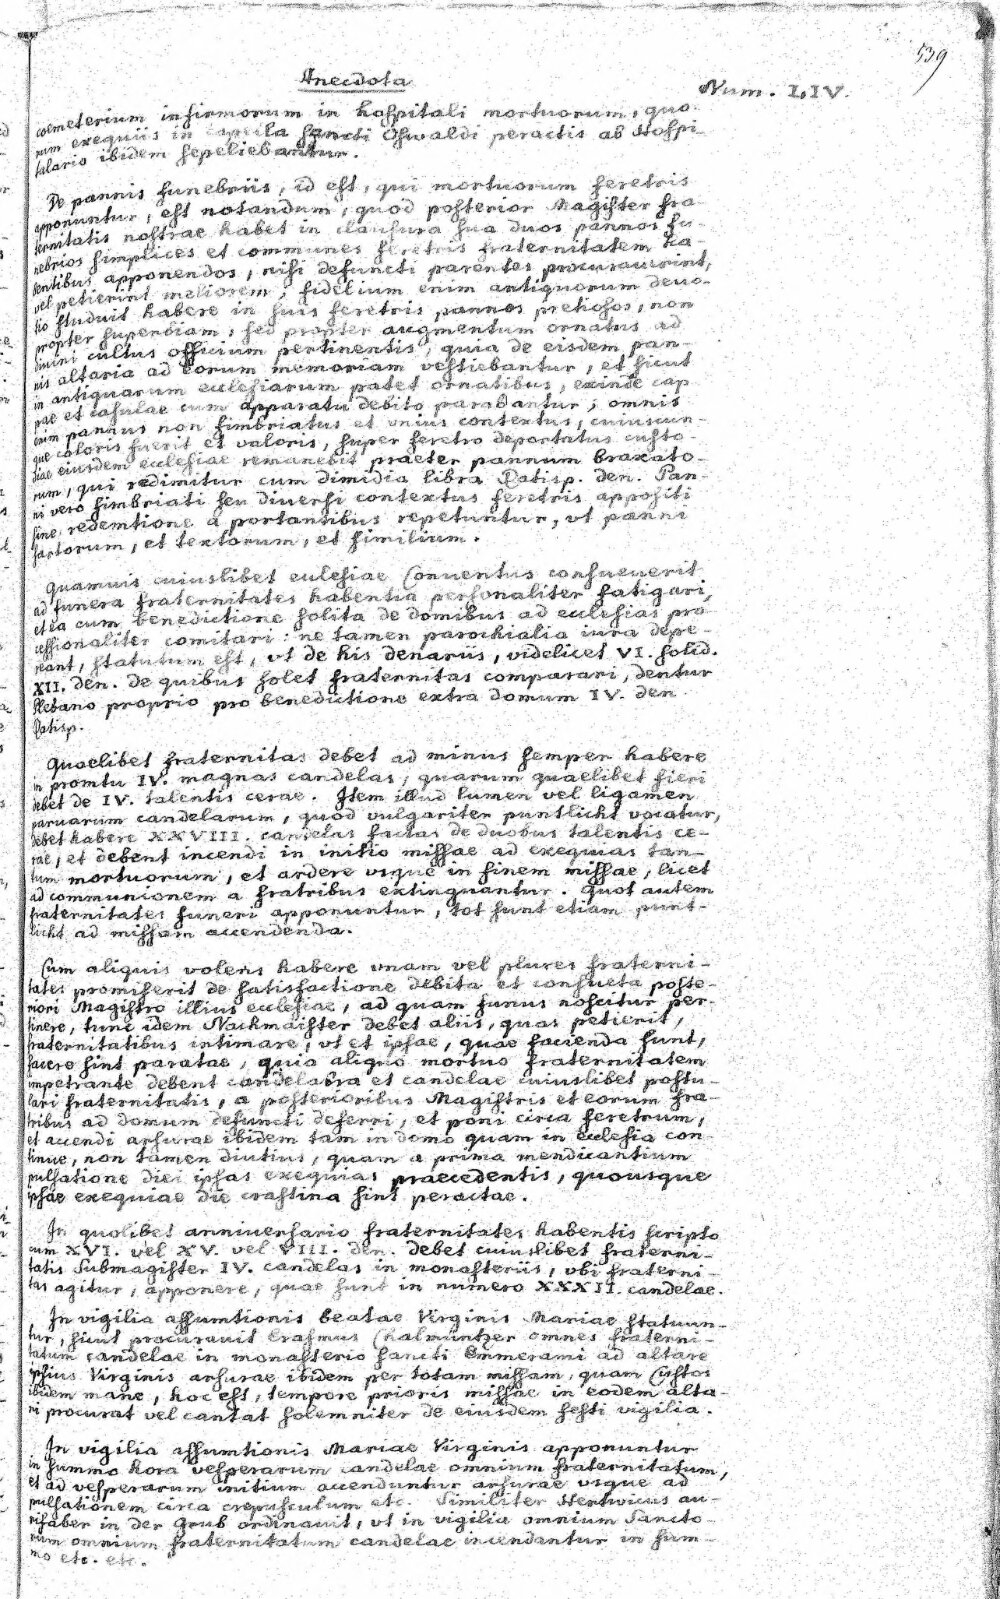 539
Anecdota
Num. LIV.
coemeterium infirmorum in hospitali mortuorum, quo-
rum exequiis in capella sancti Oswaldi peractis ab Hospi-
talario ibidem sepeliebantur.
De pannis funebriis, id est, qui mortuorum feretris
apponuntur, est notandum, quod posterior Magister fra-
ternitatis nostrae habet in clausura sua duos pannos fu-
nebrios simplices et communes feretris fraternitatem ha-
bentibus apponendos, nisi defuncti parentes procuraverint,
vel petierint meliorem; fidelium enim antiquorum devo-
tio studuit habere in suis feretris pannos pretiosos, non
propter superbiam, sed propter augmentum ornatus ad
divini cultus officium pertinentis, quia de eisdem pan-
nis altaria ad eorum memoriam vestiebantur, et sicut
in antiquarum ecclesiarum patet ornatibus, exinde cap-
pae et casulae cum apparatu debito parabantur; omnis
enim pannus non fimbriatus et unius contextus, cuiuscun-
que coloris fuerit et valoris, super feretro deportatus custo-
diae eiusdem ecclesiae remanebit praeter pannum braxato-
rum, qui redimitur cum dimidia libra Ratisp. den. Pan-
ni vero fimbriati seu diversi contextus feretris appositi
sine redemtione a portantibus repetuntur, vt panni
sartorum, et textorum, et similium.
Quamuis cuiuslibet ecclesiae Conuentus consueuerit
ad funera fraternitates habentia personaliter fatigari,
et ea cum benedictione solita de domibus ad ecclesias pro-
cessionaliter comitari: ne tamen parochialia iura depe-
reant, statutum est, vt de his denariis, videlicet VI. solid.
XII. den. de quibus solet fraternitas comparari, dentur
Plebano proprio pro benedictione extra domum IV. den
Ratisp.
Quaelibet fraternitas debet ad minus semper habere
in promtu IV. magnas candelas, quarum quaelibet fieri
debet de IV. talentis cerae. Item illud lumen vel ligamen
paruarum candelarum, quod vulgariter puntlicht vocatur,
debet habere XXVIII. candelas factas de duobus talentis ce-
rae, et debent incendi in initio missae ad exequias tan-
tum mortuorum, et ardere vsque in finem missae, licet
ad communionem a fratribus extinguantur. Quot autem
fraternitates funeri apponuntur, tot sunt etiam punt-
licht ad missam accendenda.
Cum aliquis volens habere vnam vel plures fraterni-
tates promiserit de satisfactione debita et consueta poste-
riori Magistro illius ecclesiae, ad quam funus noscitur per-
tinere, tunc idem Nachmaister debet aliis, quas petierit,
fraternitatibus intimare, vt et ipsae, quae facienda sunt,
facere sint paratae, quia aliquo mortuo fraternitatem
impetrante debent candelabra et candelae cuiuslibet postu-
lari fraternitatis, a posterioribus Magistris et eorum fra-
tribus ad domum defuncti deferri, et poni circa feretrum,
et accendi arsurae ibidem tam in domo quam in ecclesia con-
tinue, non tamen diutius, quam a prima mendicantium
pulsatione diei ipsas exequias praecedentis, quousque
ipsae exequiae die crastina sint peractae.
In quolibet anniversario fraternitates habentis scripto
cum XVI. vel XV. vel VIII. den. debet cuiuslibet fraterni-
tatis Submagister IV. candelas in monasteriis, vbi fraterni-
tas agitur, apponere, quae sunt in numero XXXII. candelae.
In vigilia assumtionis beatae Virginis Mariae statuun-
tur, sicut procurauit Erasmus Chalmüntzer omnes fraterni-
tatum candelae in monasterio sancti Emmerami ad altare
ipsius Virginis arsurae ibidem per totam missam, quam Custos
ibidem mane, hoc est, tempore prioris missae in eodem alta-
ri procurat vel cantat solemniter de eiusdem festi vigilia.
In vigilia assumtionis Mariae Virginis apponuntur
in summo hora vesperarum candelae omnium fraternitatum,
et ad vesperarum initium accenduntur arsurae vsque ad
pulsationem circa crepusculum etc. Similiter Hertwicus au-
rifaber in der Grub ordinauit, vt in vigilia omnium Sancto-
rum omnium fraternitatum candelae incendantur in sum-
mo etc. etc.